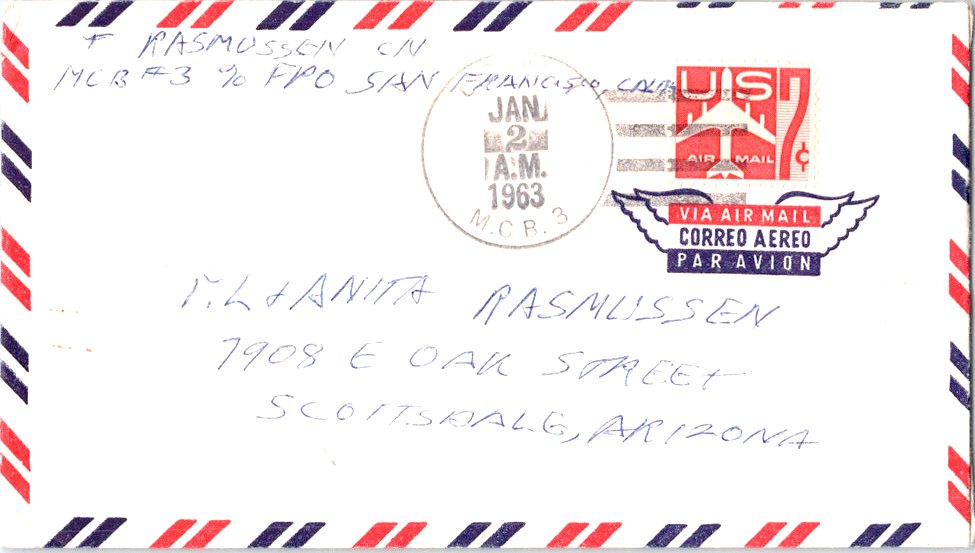 F RASMUSSEN CN
MCB #3 % FPO SAN FRANCISCO, CALIF
JAN
2
A.M.
1963
M.C.B. 3
US
7¢
AIR MAIL
VIA AIR MAIL
CORREO AEREO
PAR AVION
M.L & ANITA RASMUSSEN
7908 E OAK STREET
SCOTTSDALE, ARIZONA